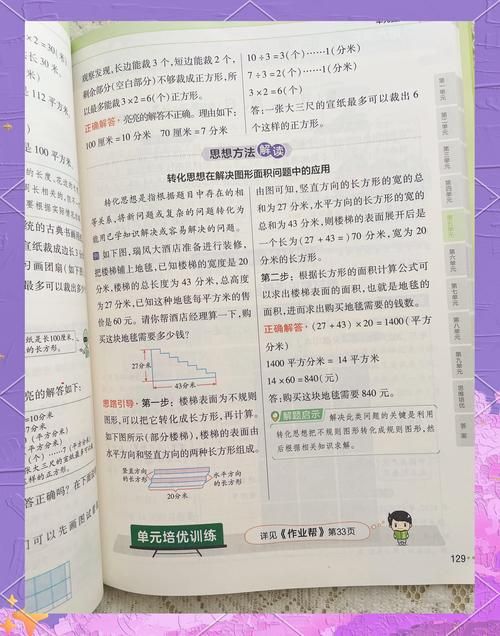 ×2=30(
长30米.
是112平方
的长度,花边的长
观察发现,长边能裁3个,短边能裁2个,
剩余部分(空白部分)不够裁成正方形,所
以最多能裁3×2=6(个)正方形。
正确解答:亮亮的解答不正确。理由如下:
100厘米=10分米 70厘米=7分米
10÷3=3(个)……1(分米)
7÷3=2(个)……1(分米)
3×2=6(个)
答:一张大三尺的宣纸最多可以裁出6
个这样的正方形。
思想方法解读
转化思想在解决图形面积问题中的应用
转化思想是指根据题目中存在的相
等关系,将新问题或复杂的问题转化为
能用已学知识解决或容易解决的问题。
如下图,瑞凤大酒店准备进行装修,
把楼梯铺上地毯,已知楼梯的宽度是20
分米,楼梯的总长度为43分米,总高度
为27分米,已知这种地毯每平方米的售
价是60元。请你帮酒店经理算一下,购
买这块地毯需要多少钱?
27分米
43分米
思路引导:第一步:楼梯表面为不规则
图形,可以把它转化成长方形,再计算。
如下图所示(部分楼梯),楼梯的表面由
水平方向和竖直方向的两种长方形组成。
竖直方向
的长方形
水平方向
的长方形
20分米
由图可知,竖直方向的长方形的宽的总
和为27分米,水平方向的长方形的宽的
总和为43分米,则楼梯的表面展开后是
一个长为(27+43=)70分米,宽为20
分米的长方形。
第二步:根据长方形的面积计算公式可
以求出楼梯表面的面积,也就是地毯的
面积,进而求出购买地毯需要的钱数。
正确解答:(27+43)×20=1400(平方
分米)
1400平方分米=14平方米
14×60=840(元)
答:购买这块地毯需要840元。
解题启示 解决此类问题的关键是利用
转化思想把不规则图形转化成规则图形,然
后根据相关知识求解。
单元培优训练
详见《作业帮》第33页
129
第一单元
第二单元
第三单元
第四单元
第五单元
第六单元
第七单元
第八单元
第九单元
思维培优
答案
根据实际情
伟的古典书
宣纸裁成完
习画团扇(
可以裁出多少
纸是长100厘米,
的长方形。
亮的解答如下:
=10分米
(平方分米)
(平方分米)
答正确吗?在下
可以先画图试